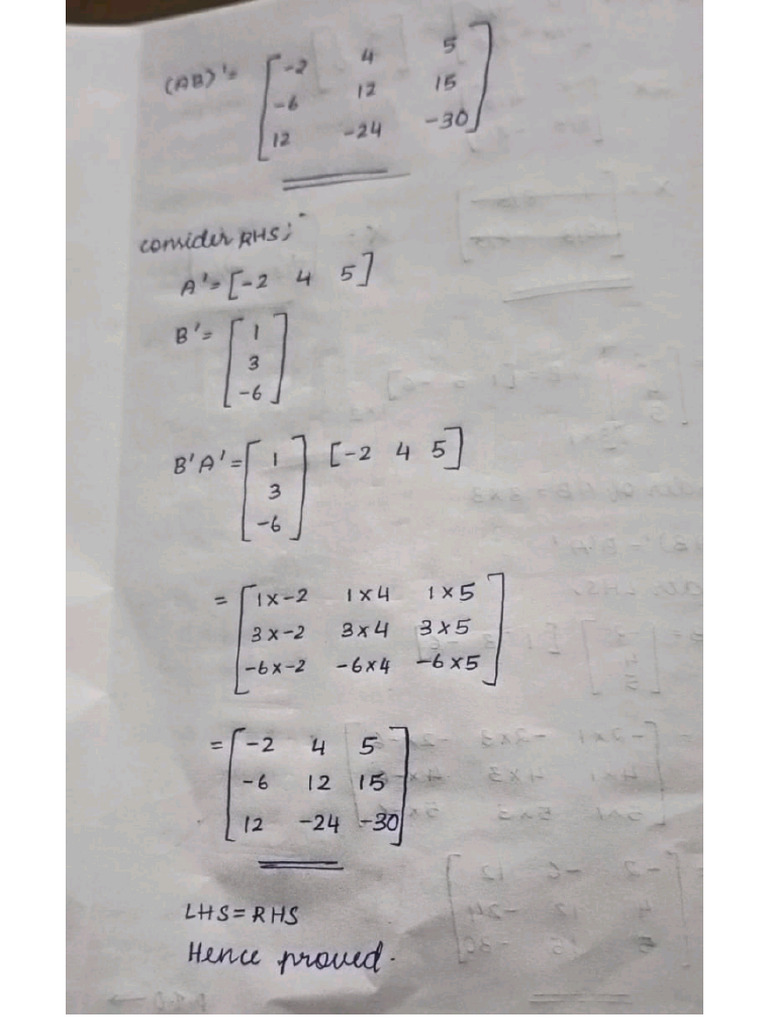 (AB)' = [-2 4 5
-6 12 15
12 -24 -30]
consider RHS;
A' = [-2 4 5]
B' = [1
3
-6]
B'A' = [1 [-2 4 5]
3
-6]
= [1×-2 1×4 1×5
3×-2 3×4 3×5
-6×-2 -6×4 -6×5]
= [-2 4 5
-6 12 15
12 -24 -30]
LHS = RHS
Hence proved.